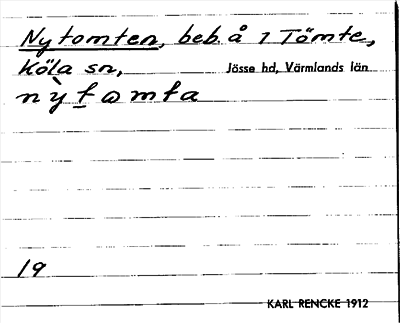 Nytomten, beb. å 1 Tömte,
Köla sn, Jösse hd, Värmlands län
nỳtomta
19
KARL RENCKE 1912